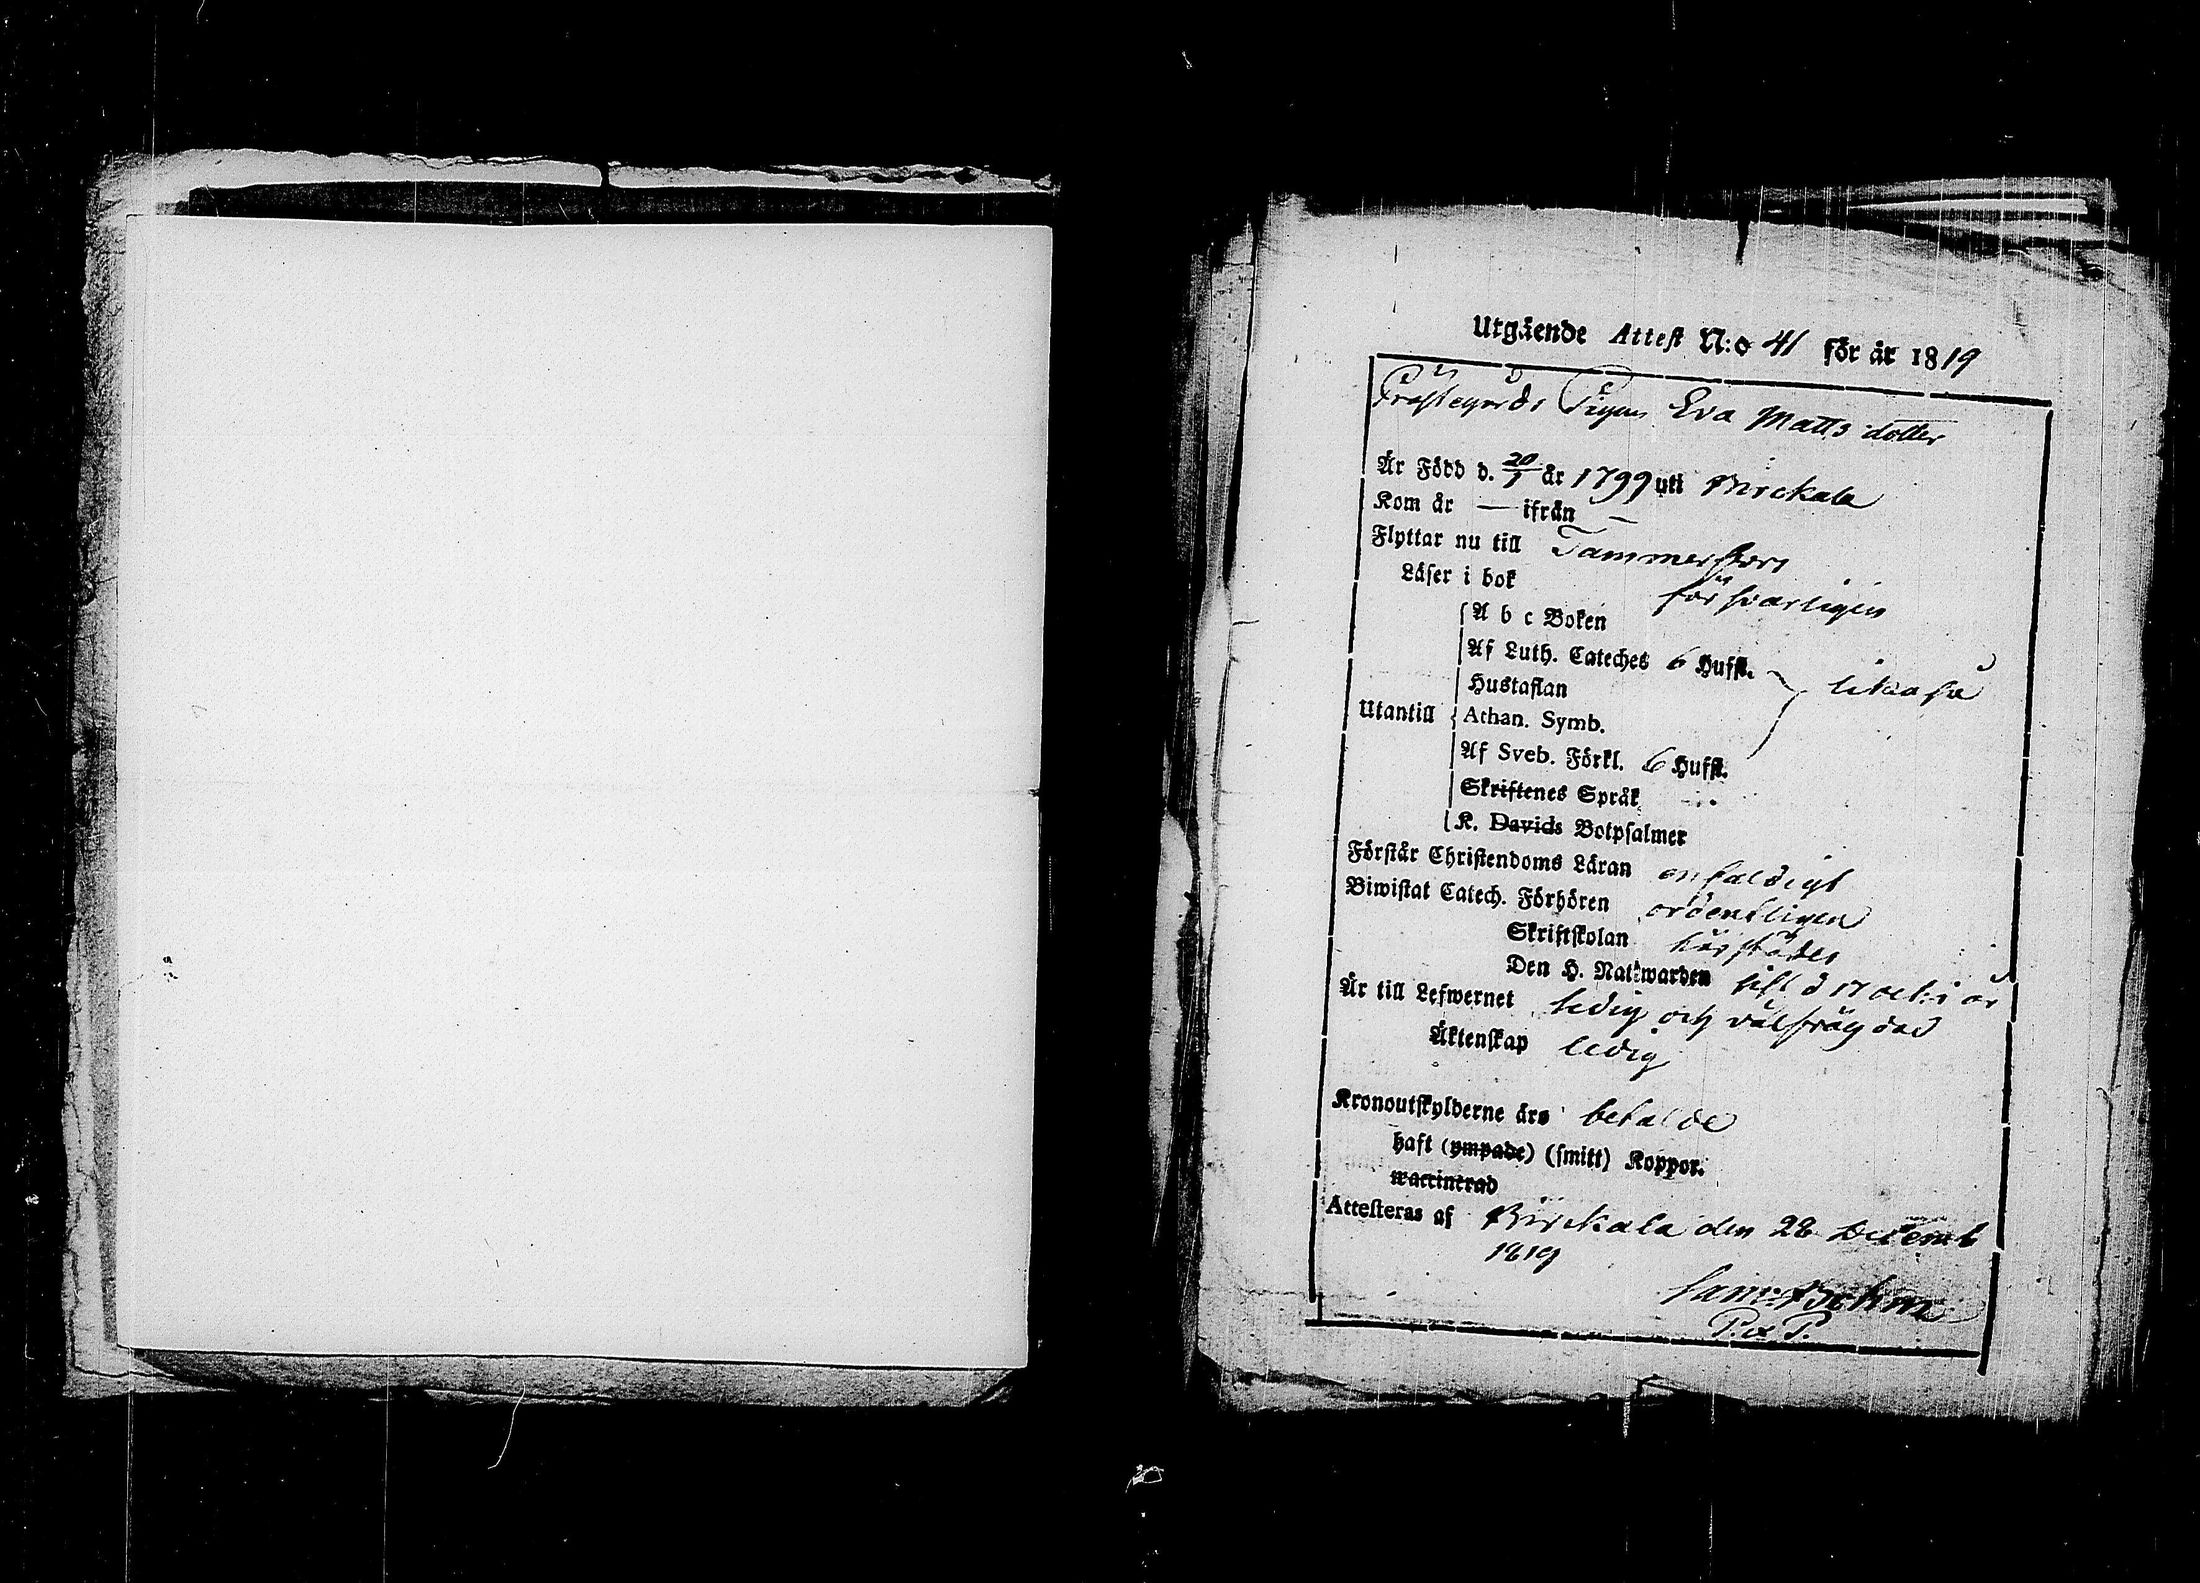 Utgående Attest N:o 41 för år 1819
Prästegårds Pigan Eva Matts dotter
Är Född d. 20/1 år 1799 uti Birckala
Kom år — ifrån —
Flyttar nu till Tammerfors
Läser i bok försvarligen
A b c Boken
Af Luth. Cateches 6 Hufst.
Hustaflan likaså
Utantill Athan. Symb.
Af Sveb. Förkl. 6 Hufst.
Skriftenes Språk
K. Davids Botpsalmer
Förstår Christendoms Läran enfaldigt
Biwistat Catech. Förhören ordentligen
Skriftskolan härstädes
Den H. Nattwarden sist d 17 oct: i år
Är till Lefwernet ledig och välfrägdad
Äktenskap ledig
Kronoutskylderne äro betalde
haft (ympade) (smitt) Koppor.
waccinerad
Attesteras af Birckala den 28 Decemb
1819
Sam: Bohm
P. & P.